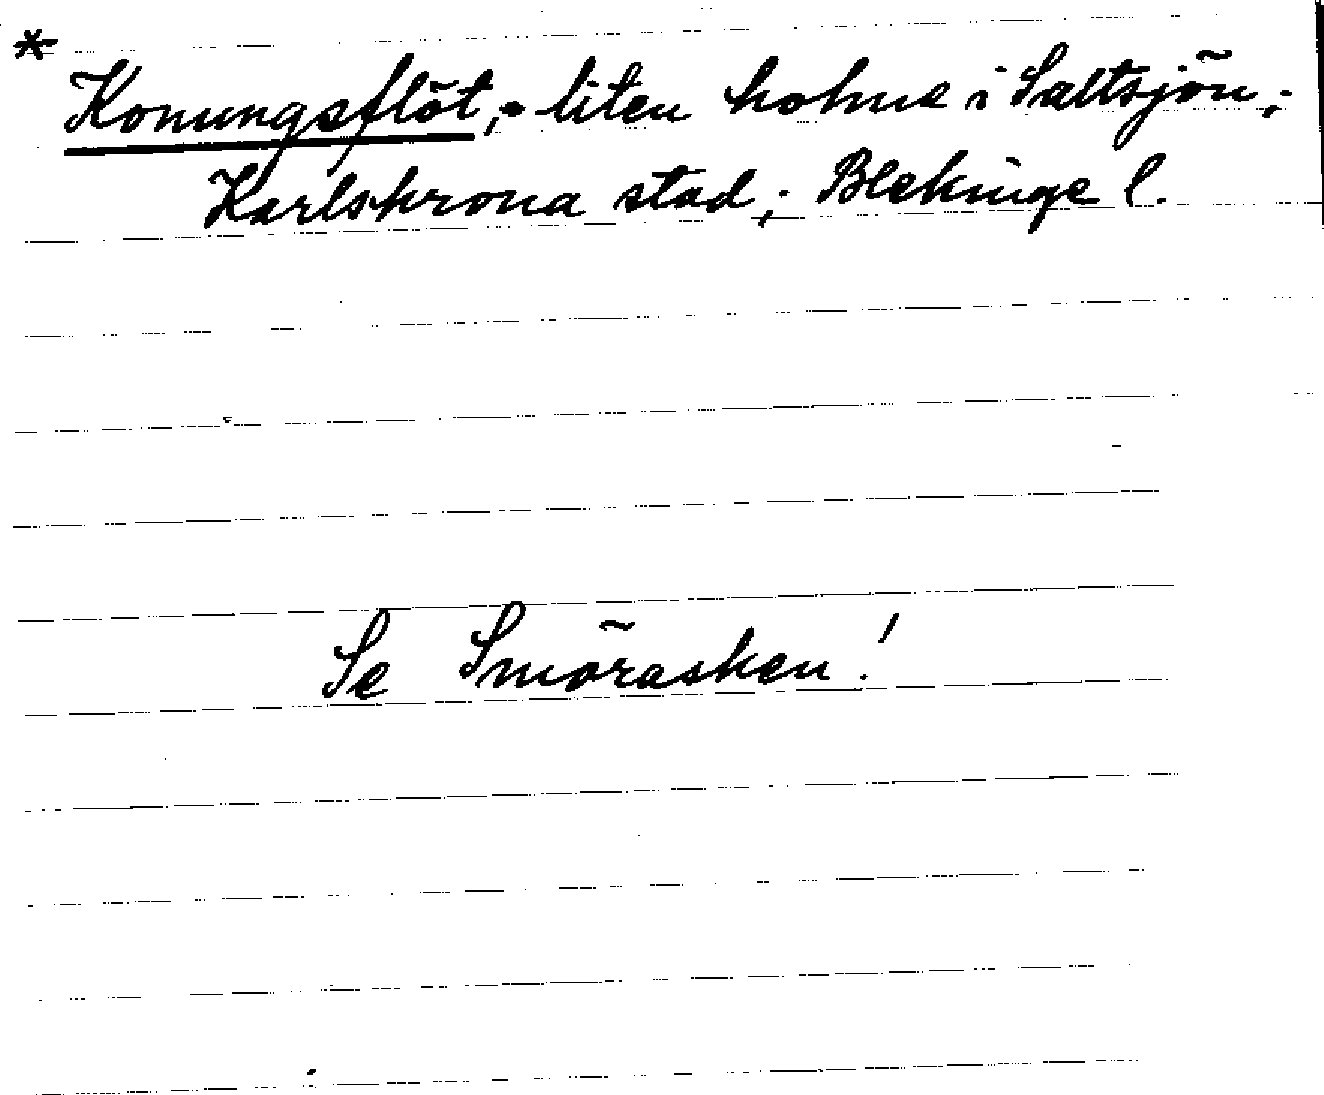 * Konungsflöt,- liten holme i Saltsjön,-
Karlskrona stad,- Blekinge l.
Se Smörasken!